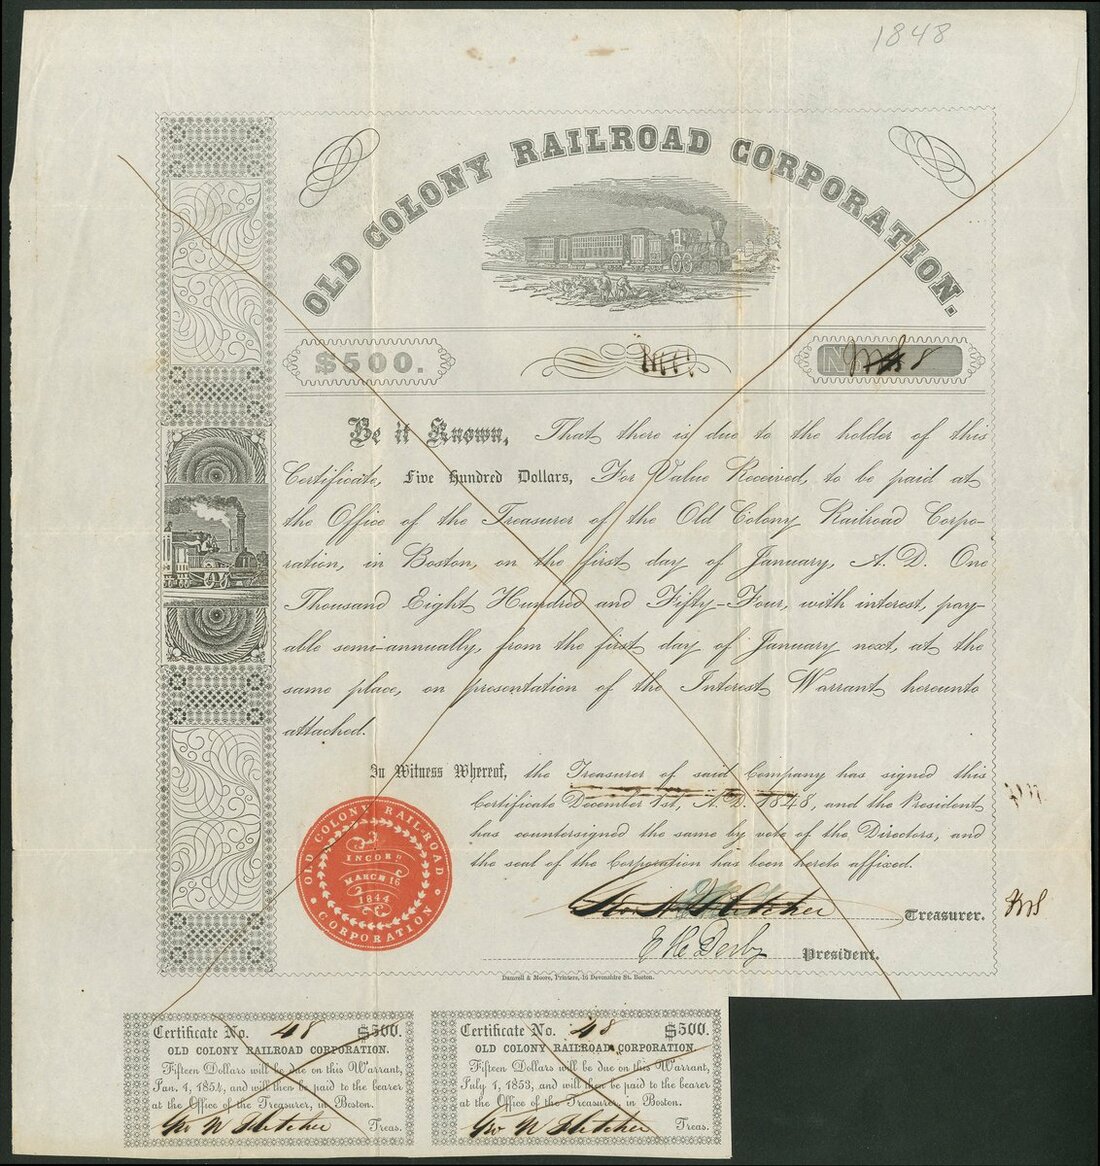 1848
OLD COLONY RAILROAD CORPORATION.
$500.
Be it Known, That there is due to the holder of this
Certificate, Five Hundred Dollars, For Value Received, to be paid at
the Office of the Treasurer of the Old Colony Railroad Corpo-
ration, in Boston, on the first day of January, A. D. One
Thousand Eight Hundred and Fifty-Four, with interest, pay-
able semi-annually, from the first day of January next, at the
same place, on presentation of the Interest Warrant hereunto
attached.
In Witness Whereof, the Treasurer of said Company has signed this
Certificate December 1st, A. D. 1848, and the President
has countersigned the same by vote of the Directors, and
the seal of the Corporation has been hereto affixed.
OLD COLONY RAIL-ROAD
CORPORATION
INCORD
MARCH 16
1844
Geo. W. Fletcher Treasurer.
E H Derby President.
Damrell & Moore, Printers, 16 Devonshire St. Boston.
Certificate No. 48 $500.
OLD COLONY RAILROAD CORPORATION.
Fifteen Dollars will be due on this Warrant,
Jan. 1, 1854, and will then be paid to the bearer
at the Office of the Treasurer, in Boston.
Geo W Fletcher Treas.
Certificate No. 48 $500.
OLD COLONY RAILROAD CORPORATION.
Fifteen Dollars will be due on this Warrant,
July 1, 1853, and will then be paid to the bearer
at the Office of the Treasurer, in Boston.
Geo W Fletcher Treas.